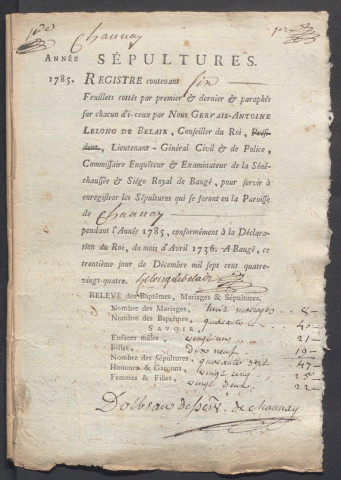 Chaunay
ANNÉE SÉPULTURES.
1785. REGISTRE contenant six
Feuillets cottés par premier & dernier & paraphés
sur chacun d'i-ceux par Nous GERVAIS-ANTOINE
LELONG DE BELAIR, Conseiller du Roi, Prési-
dent, Lieutenant-Général Civil & de Police,
Commissaire Enquêteur & Examinateur de la Séné-
chaussée & Siége Royal de Baugé, pour servir à
enregistrer les Sépultures qui se feront en la Paroisse
de Chaunay
pendant l'Année 1785, conformément à la Déclara-
tion du Roi, du mois d'Avril 1736. A Baugé, ce
trentième jour de Décembre mil sept cent quatre-
vingt-quatre. Lelong de belair
RELEVÉ des Baptêmes, Mariages & Sépultures.
Nombre des Mariages, huit mariages 8
Nombre des Baptêmes, quarante 40
SAVOIR,
Enfants mâles, vingt un 21
Filles, dix neuf 19
Nombre des Sépultures, quarante sept 47
Hommes & Garçons, vingt cinq 25
Femmes & Filles, vingt deux 22
de Chaunay